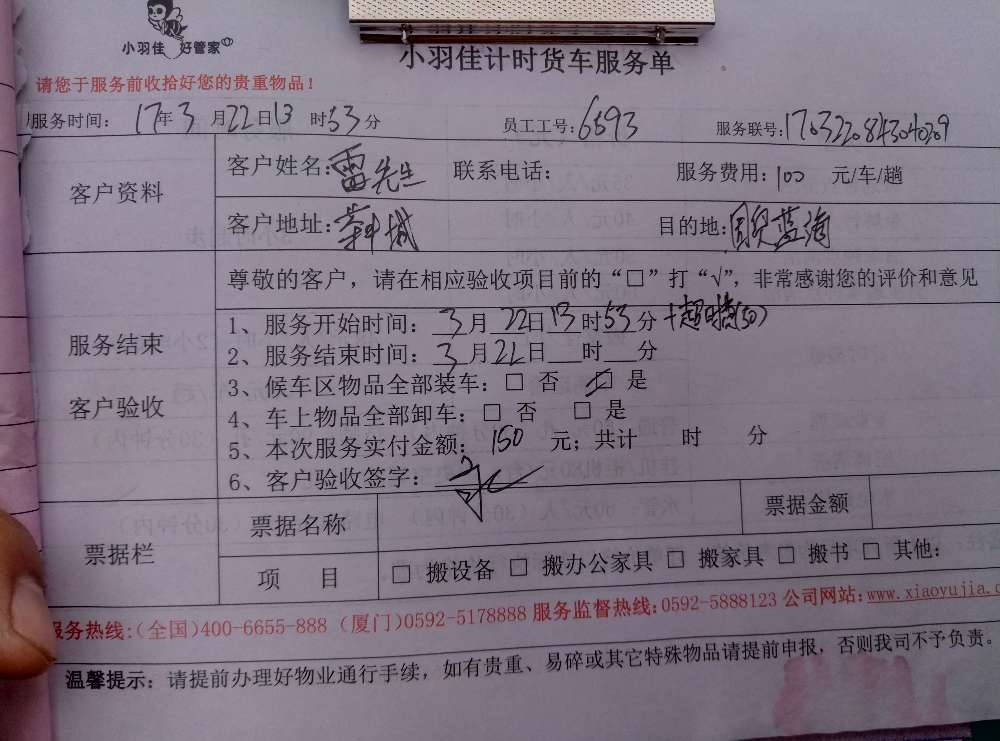 小羽佳 好管家
小羽佳计时货车服务单
请您于服务前收拾好您的贵重物品！
服务时间： 17年3月22日13时53分 员工工号：6593 服务联号：
客户资料 客户姓名：雷先生 联系电话： 服务费用：100 元/车/趟
客户地址： 目的地：国贸蓝海
尊敬的客户，请在相应验收项目前的“□”打“√”，非常感谢您的评价和意见
服务结束
客户验收
1、服务开始时间：3月22日13时53分 +超时费(50)
2、服务结束时间：3月22日 时 分
3、候车区物品全部装车：□ 否 ☑ 是
4、车上物品全部卸车：□ 否 □ 是
5、本次服务实付金额：150 元；共计 时 分
6、客户验收签字：
票据栏 票据名称 票据金额
项 目 □ 搬设备 □ 搬办公家具 □ 搬家具 □ 搬书 □ 其他：
服务热线：(全国)400-6655-888 (厦门)0592-5178888 服务监督热线：0592-5888123 公司网站：www.xiaoyujia.c
温馨提示：请提前办理好物业通行手续，如有贵重、易碎或其它特殊物品请提前申报，否则我司不予负责。